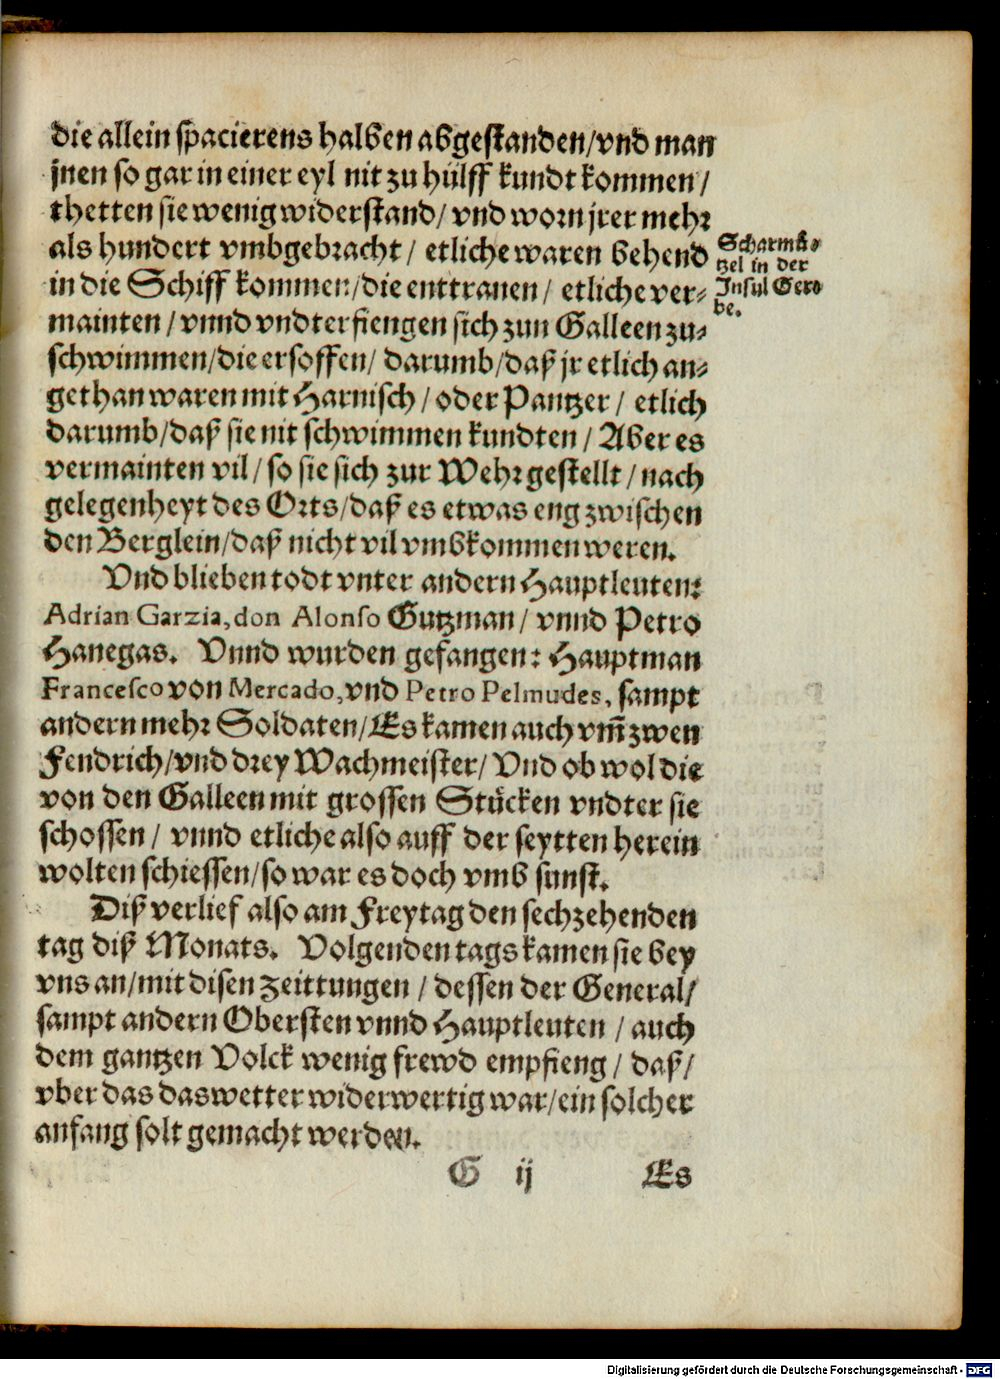 die allein spacierens halben abgestanden/vnd man
jnen so gar in einer eyl nit zu hülff kundt kommen/
thetten sie wenig widerstand/ vnd worn jrer mehr
als hundert vmbgebracht/ etliche waren behend
in die Schiff kommen/die enttranen/ etliche ver⸗
mainten/vnnd vndterfiengen sich zun Galleen zu⸗
schwimmen/die ersoffen/ darumb/daß jr etlich an⸗
gethan waren mit Harnisch/oder Pantzer/ etlich
darumb/daß sie nit schwimmen kundten/Aber es
vermainten vil/so sie sich zur Wehr gestellt/nach
gelegenheyt des Orts/daß es etwas eng zwischen
den Berglein/daß nicht vil vmbkommen weren.
Scharmü⸗
tzel in der
Insul Gero
be.
Vnd blieben todt vnter andern Hauptleuten:
Adrian Garzia, don Alonso Gutzman/ vnnd Petro
Hanegas. Vnnd wurden gefangen: Hauptman
Francesco von Mercado, vnd Petro Pelmudes, sampt
andern mehr Soldaten/Es kamen auch vm̃ zwen
Fendrich/vnd drey Wachmeister/ Vnd ob wol die
von den Galleen mit grossen Stücken vndter sie
schossen/ vnnd etliche also auff der seytten herein
wolten schiessen/so war es doch vmb sunst.
Diß verlief also am Freytag den sechzehenden
tag diß Monats. Volgenden tags kamen sie bey
vns an/mit disen zeittungen/dessen der General/
sampt andern Obersten vnnd Hauptleuten/auch
dem gantzen Volck wenig frewd empfieng/ daß/
vber das das wetter widerwertig war/ein solcher
anfang solt gemacht werden.
G ij Es
Digitalisierung gefördert durch die Deutsche Forschungsgemeinschaft - DFG